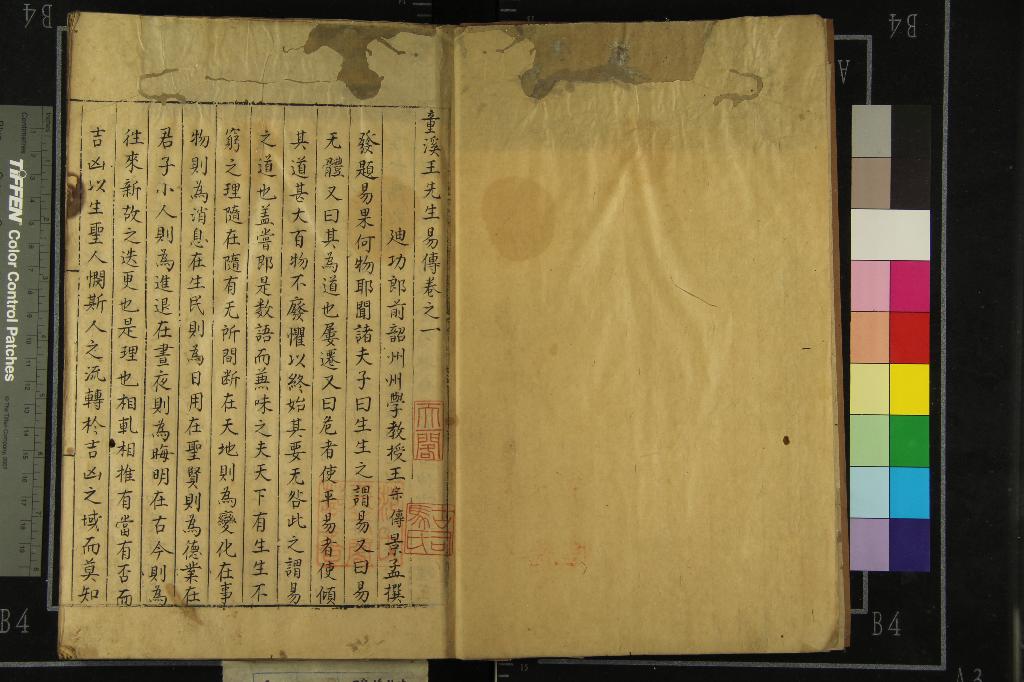 童溪王先生易傳卷之一
迪功郎前韶州州學教授王宗傳景孟撰
發題易果何物耶聞諸夫子曰生生之謂易又曰易
无體又曰其為道也屢遷又曰危者使平易者使傾
其道甚大百物不廢懼以終始其要无咎此之謂易
之道也蓋嘗即是數語而蕪味之夫天下有生生不
窮之理隨在隨有无所間斷在天地則為變化在事
物則為消息在生民則為日用在聖賢則為德業在
君子小人則為進退在晝夜則為晦明在古今則為
徃來新故之迭更也是理也相軋相推有當有否而
吉凶以生聖人憫斯人之流轉於吉凶之域而莫知
TIFFEN Color Control Patches
© The Tiffen Company, 2007
Centimetres
Inches
B4
B4
B4
B4
A
A3
15